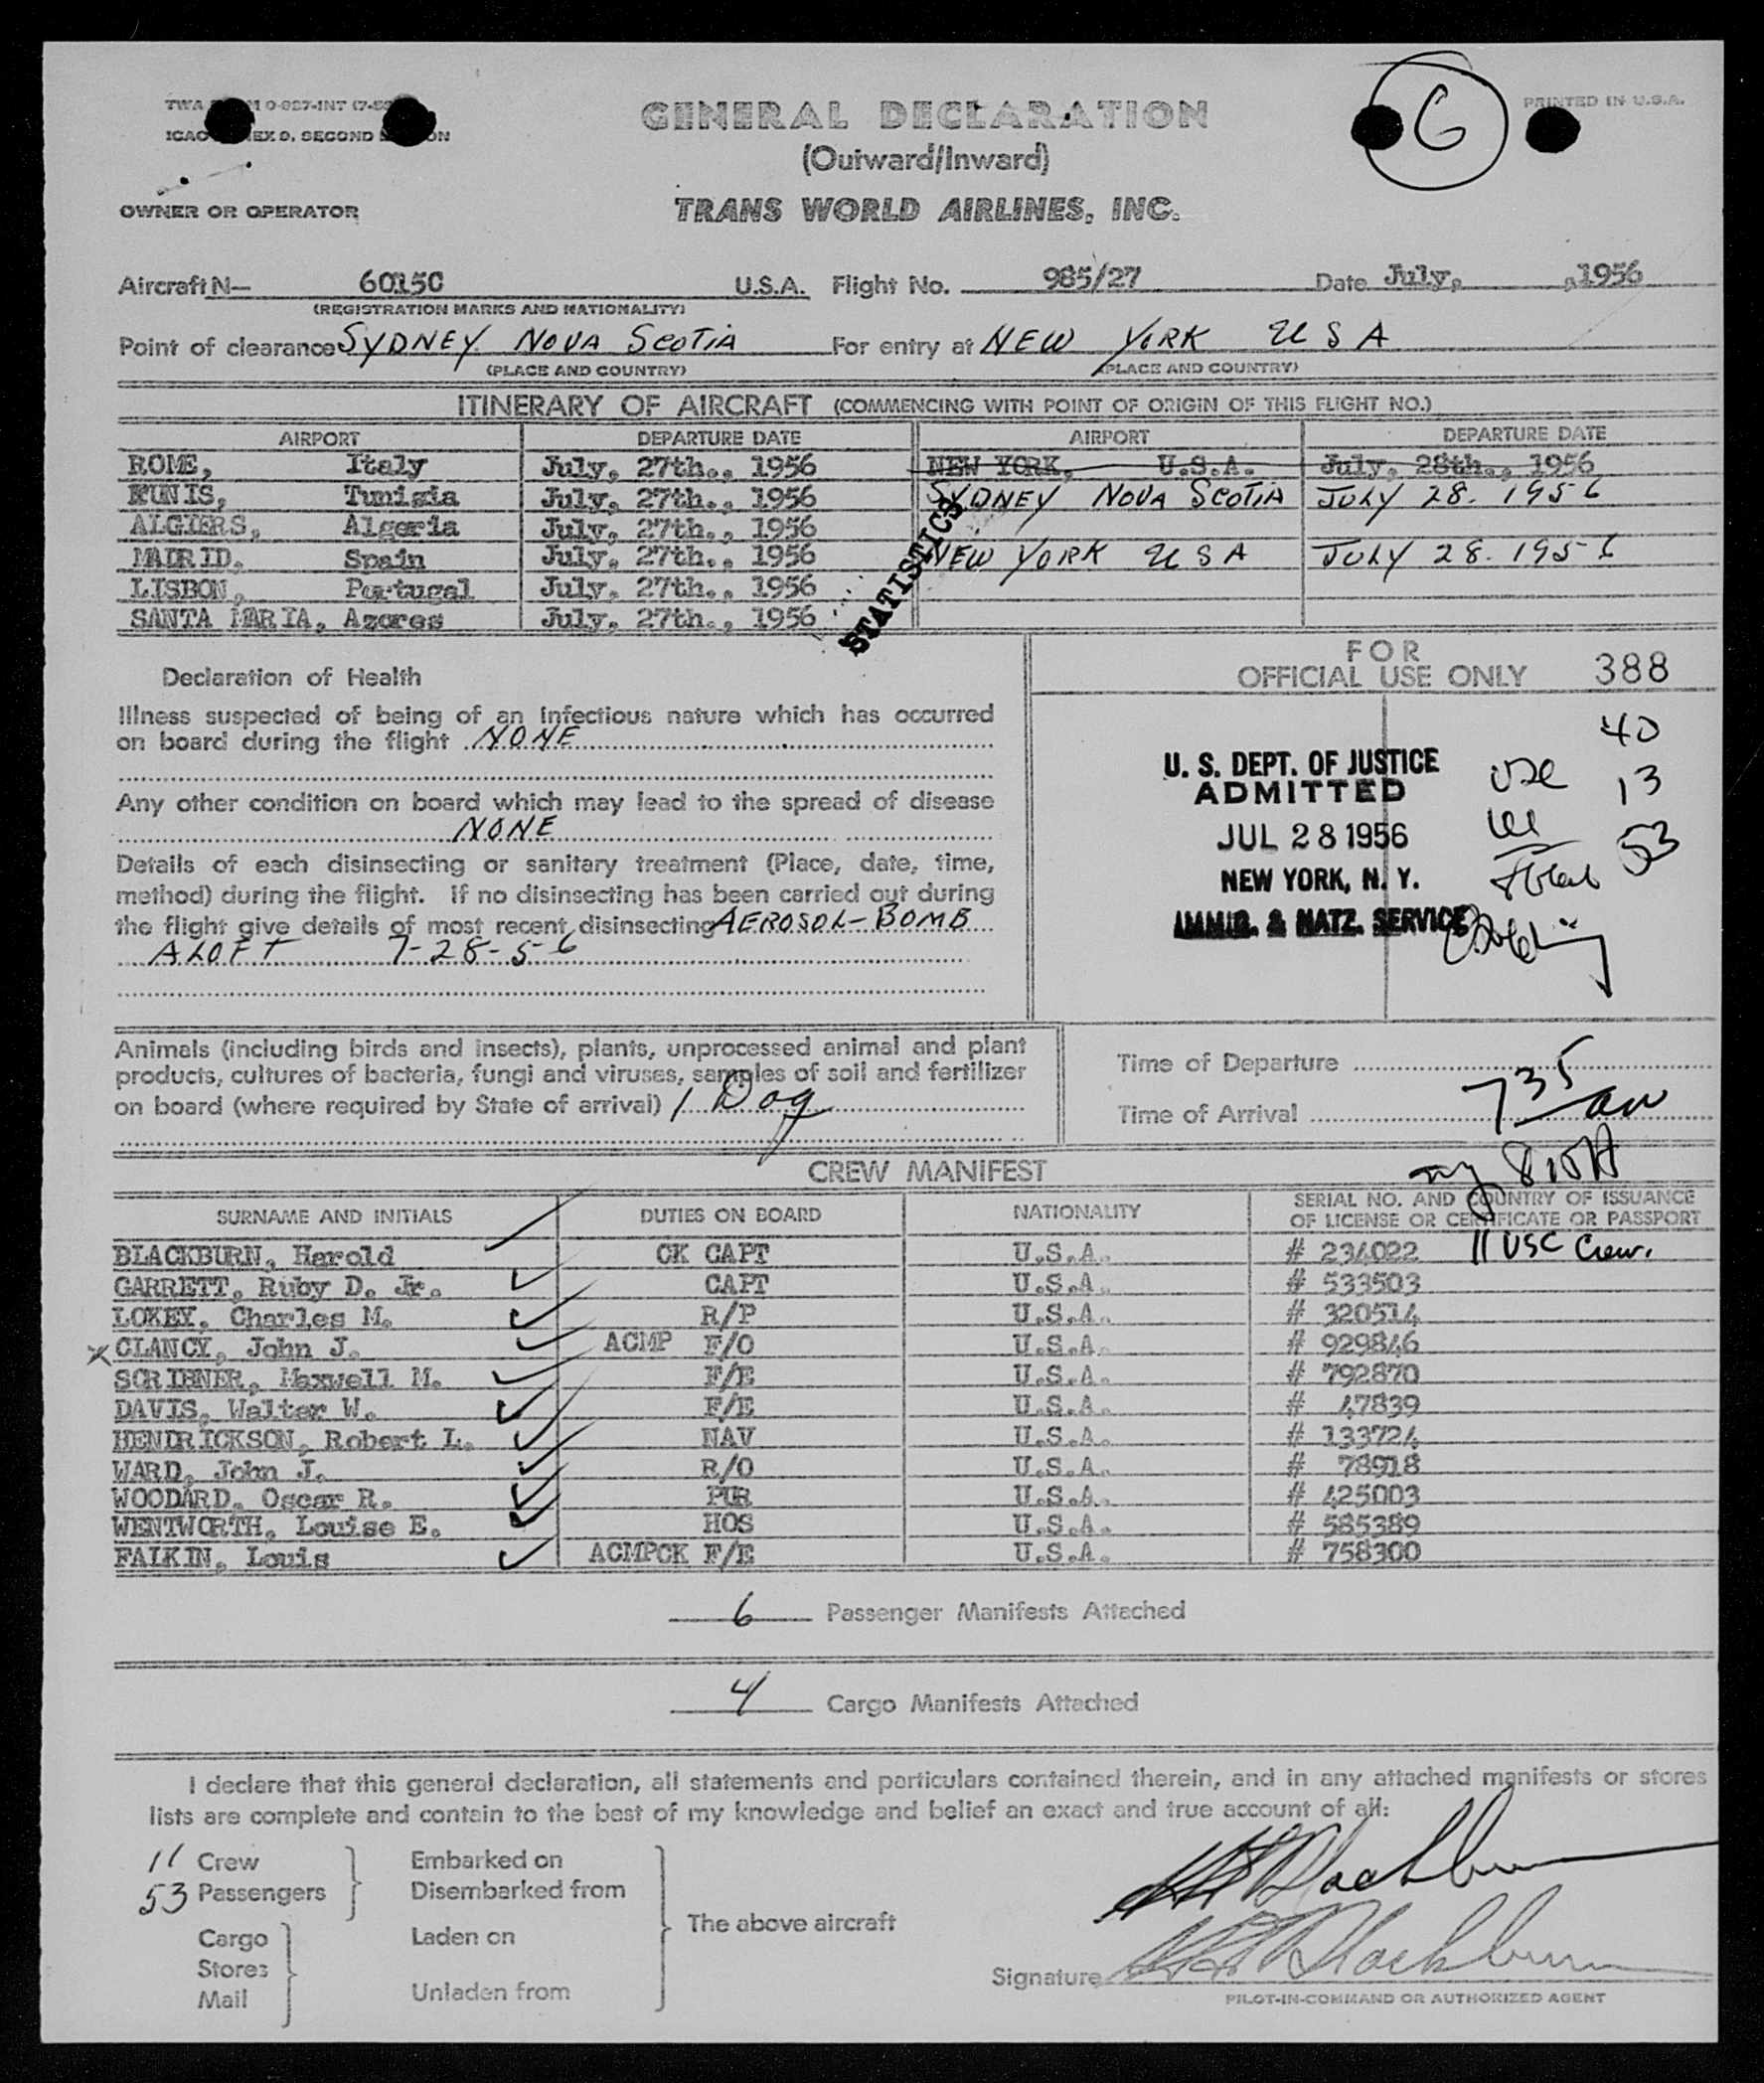 TWA M 0-987-INT (7-5
GENERAL DECLARATION
G
PRINTED IN U.S.A.
ICAO EX 9, SECOND ON
(Outward/Inward)
OWNER OR OPERATOR
TRANS WORLD AIRLINES, INC.
Aircraft N— 6015C U.S.A. Flight No. 985/27 Date July, ,1956
(REGISTRATION MARKS AND NATIONALITY)
Point of clearance SYDNEY NOVA SCOTIA For entry at NEW YORK USA
(PLACE AND COUNTRY) (PLACE AND COUNTRY)
ITINERARY OF AIRCRAFT (COMMENCING WITH POINT OF ORIGIN OF THIS FLIGHT NO.)
AIRPORT DEPARTURE DATE AIRPORT DEPARTURE DATE
ROME, Italy July, 27th., 1956 NEW YORK, U.S.A. July, 28th., 1956
TUNIS, Tunisia July, 27th., 1956 SYDNEY NOVA SCOTIA JULY 28. 1956
ALGIERS, Algeria July, 27th., 1956
MADRID, Spain July, 27th., 1956 NEW YORK USA JULY 28. 1956
LISBON, Portugal July, 27th., 1956
SANTA MARIA, Azores July, 27th., 1956
STATISTICS
FOR
OFFICIAL USE ONLY 388
Declaration of Health
Illness suspected of being of an infectious nature which has occurred
on board during the flight NONE
Any other condition on board which may lead to the spread of disease
NONE
Details of each disinsecting or sanitary treatment (Place, date, time,
method) during the flight. If no disinsecting has been carried out during
the flight give details of most recent disinsecting AEROSOL-BOMB
ALOFT 7-28-56
40
U. S. DEPT. OF JUSTICE
ADMITTED
USC 13
JUL 28 1956
NEW YORK, N. Y.
Total 53
IMMIG. & NATZ. SERVICE
Animals (including birds and insects), plants, unprocessed animal and plant
products, cultures of bacteria, fungi and viruses, samples of soil and fertilizer
on board (where required by State of arrival) 1 Dog
Time of Departure
Time of Arrival 735 am
CREW MANIFEST
SURNAME AND INITIALS DUTIES ON BOARD NATIONALITY SERIAL NO. AND COUNTRY OF ISSUANCE
OF LICENSE OR CERTIFICATE OR PASSPORT
BLACKBURN, Harold CK CAPT U.S.A. # 234022 11 USC Crew.
GARRETT, Ruby D. Jr. CAPT U.S.A. # 533503
LOKEY, Charles M. R/P U.S.A. # 320514
x CLANCY, John J. ACMP F/O U.S.A. # 929846
SCRIBNER, Maxwell M. F/E U.S.A. # 792870
DAVIS, Walter W. F/E U.S.A. # 47839
HENDRICKSON, Robert L. NAV U.S.A. # 133724
WARD, John J. R/O U.S.A. # 78918
WOODARD, Oscar R. PUR U.S.A. # 425003
WENTWORTH, Louise E. HOS U.S.A. # 585389
FALKIN, Louis ACMPCK F/E U.S.A. # 758300
6 Passenger Manifests Attached
4 Cargo Manifests Attached
I declare that this general declaration, all statements and particulars contained therein, and in any attached manifests or stores
lists are complete and contain to the best of my knowledge and belief an exact and true account of all:
11 Crew Embarked on
53 Passengers Disembarked from
The above aircraft
Cargo Laden on
Stores
Mail Unladen from
H Blackburn
Signature H Blackburn
PILOT-IN-COMMAND OR AUTHORIZED AGENT